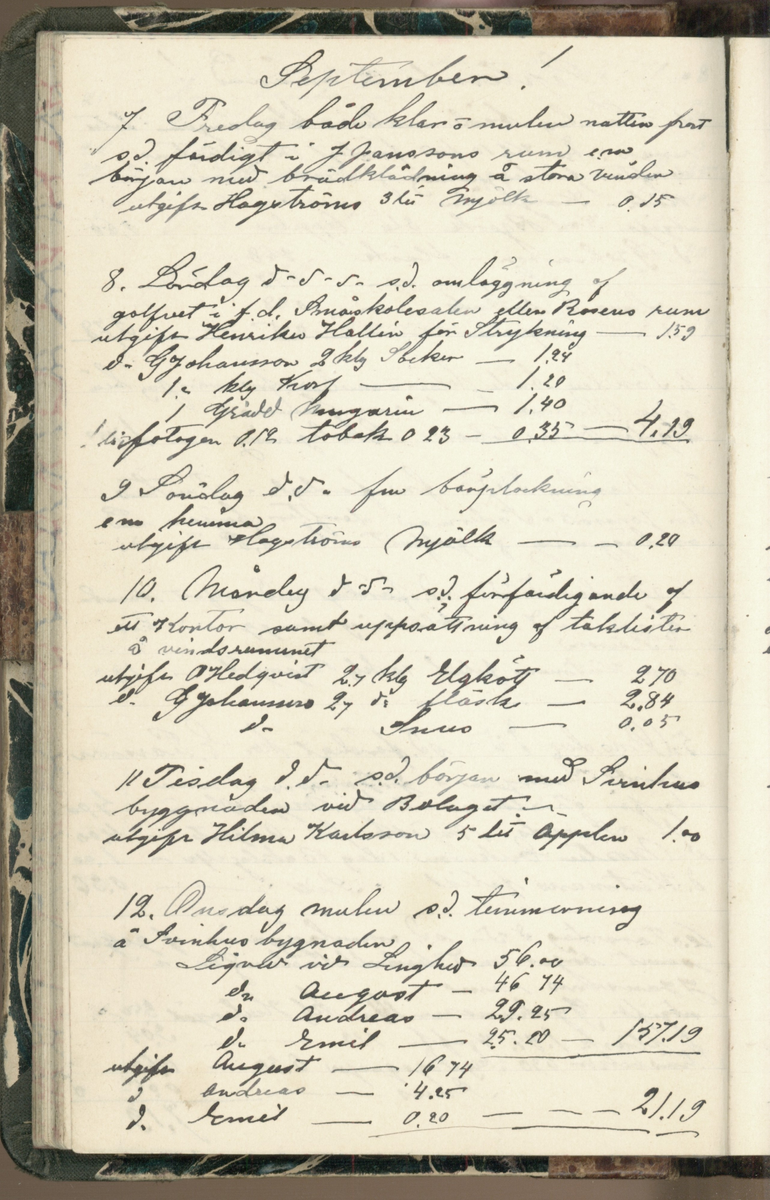 September!
7. Fredag både klar o mulen natten frost
s.d. färdigt i J Janssons rum em
början med brädklädning å stora vinden
utgift Hagströms 3 lit Mjölk — 0.15
8. Lördag d-d-d- s.d. omläggning af
golfvet i f.d. Småskolesalen eller Rosens rum
utgift Henriku Hallin för Strykning — 1.59
d- G Johansson 2 klg Socker — 1.24
1 klg Korf — 1.20
1 Grädd Mungarin — 1.40
1 lit fotogen 0.12 tobak 0 23 — 0.35 — 4.19
9 Söndag d.d. fm bärplockning
em hemma
utgift Hagströms Mjölk — 0.20
10. Måndag d d- s.d. förfärdigande af
ett Kontor samt uppsättning af taklister
å vindsrummet
utgift O Hedqvist 2,7 klg Elgkött — 2.70
d. G Johansson 2,7 d: fläsk — 2.84
d- Snus — 0.05
11 Tisdag d.d- s.d. början med Svinhus
byggnaden vid Bolaget
utgift Hilma Karlsson 5 lit Äpplen 1.00
12. Onsdag mulen s.d. timmerning
å Svinhusbygnaden
Liqvid vid Linghed 56.00
d: August — 46 74
d. Andreas — 29.25
d. Emil — 25.20 — 157.19
utgift August — 16 74
d Andreas — 4.25
d. Emil — 0.20 — — — 21.19